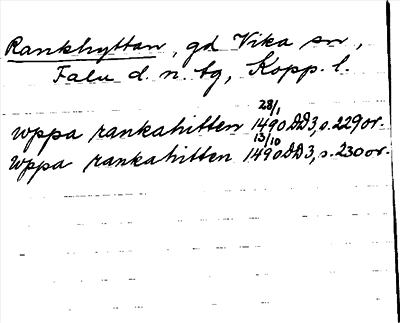 Rankhyttan, gd Vika sn,
Falu d. n. tg, Kopp. l.
uppa rankahitten 28/1 1490 DD3, s. 229 or.
uppa rankahitten 13/10 1490 DD3, s. 230 or.